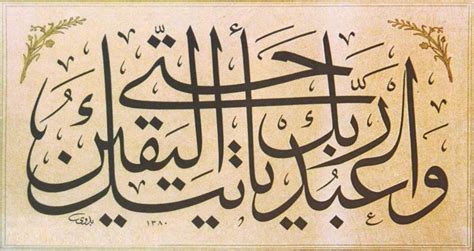 واعبد ربّك حتّى يأتيك اليقين
بدوي ١٣٨٠